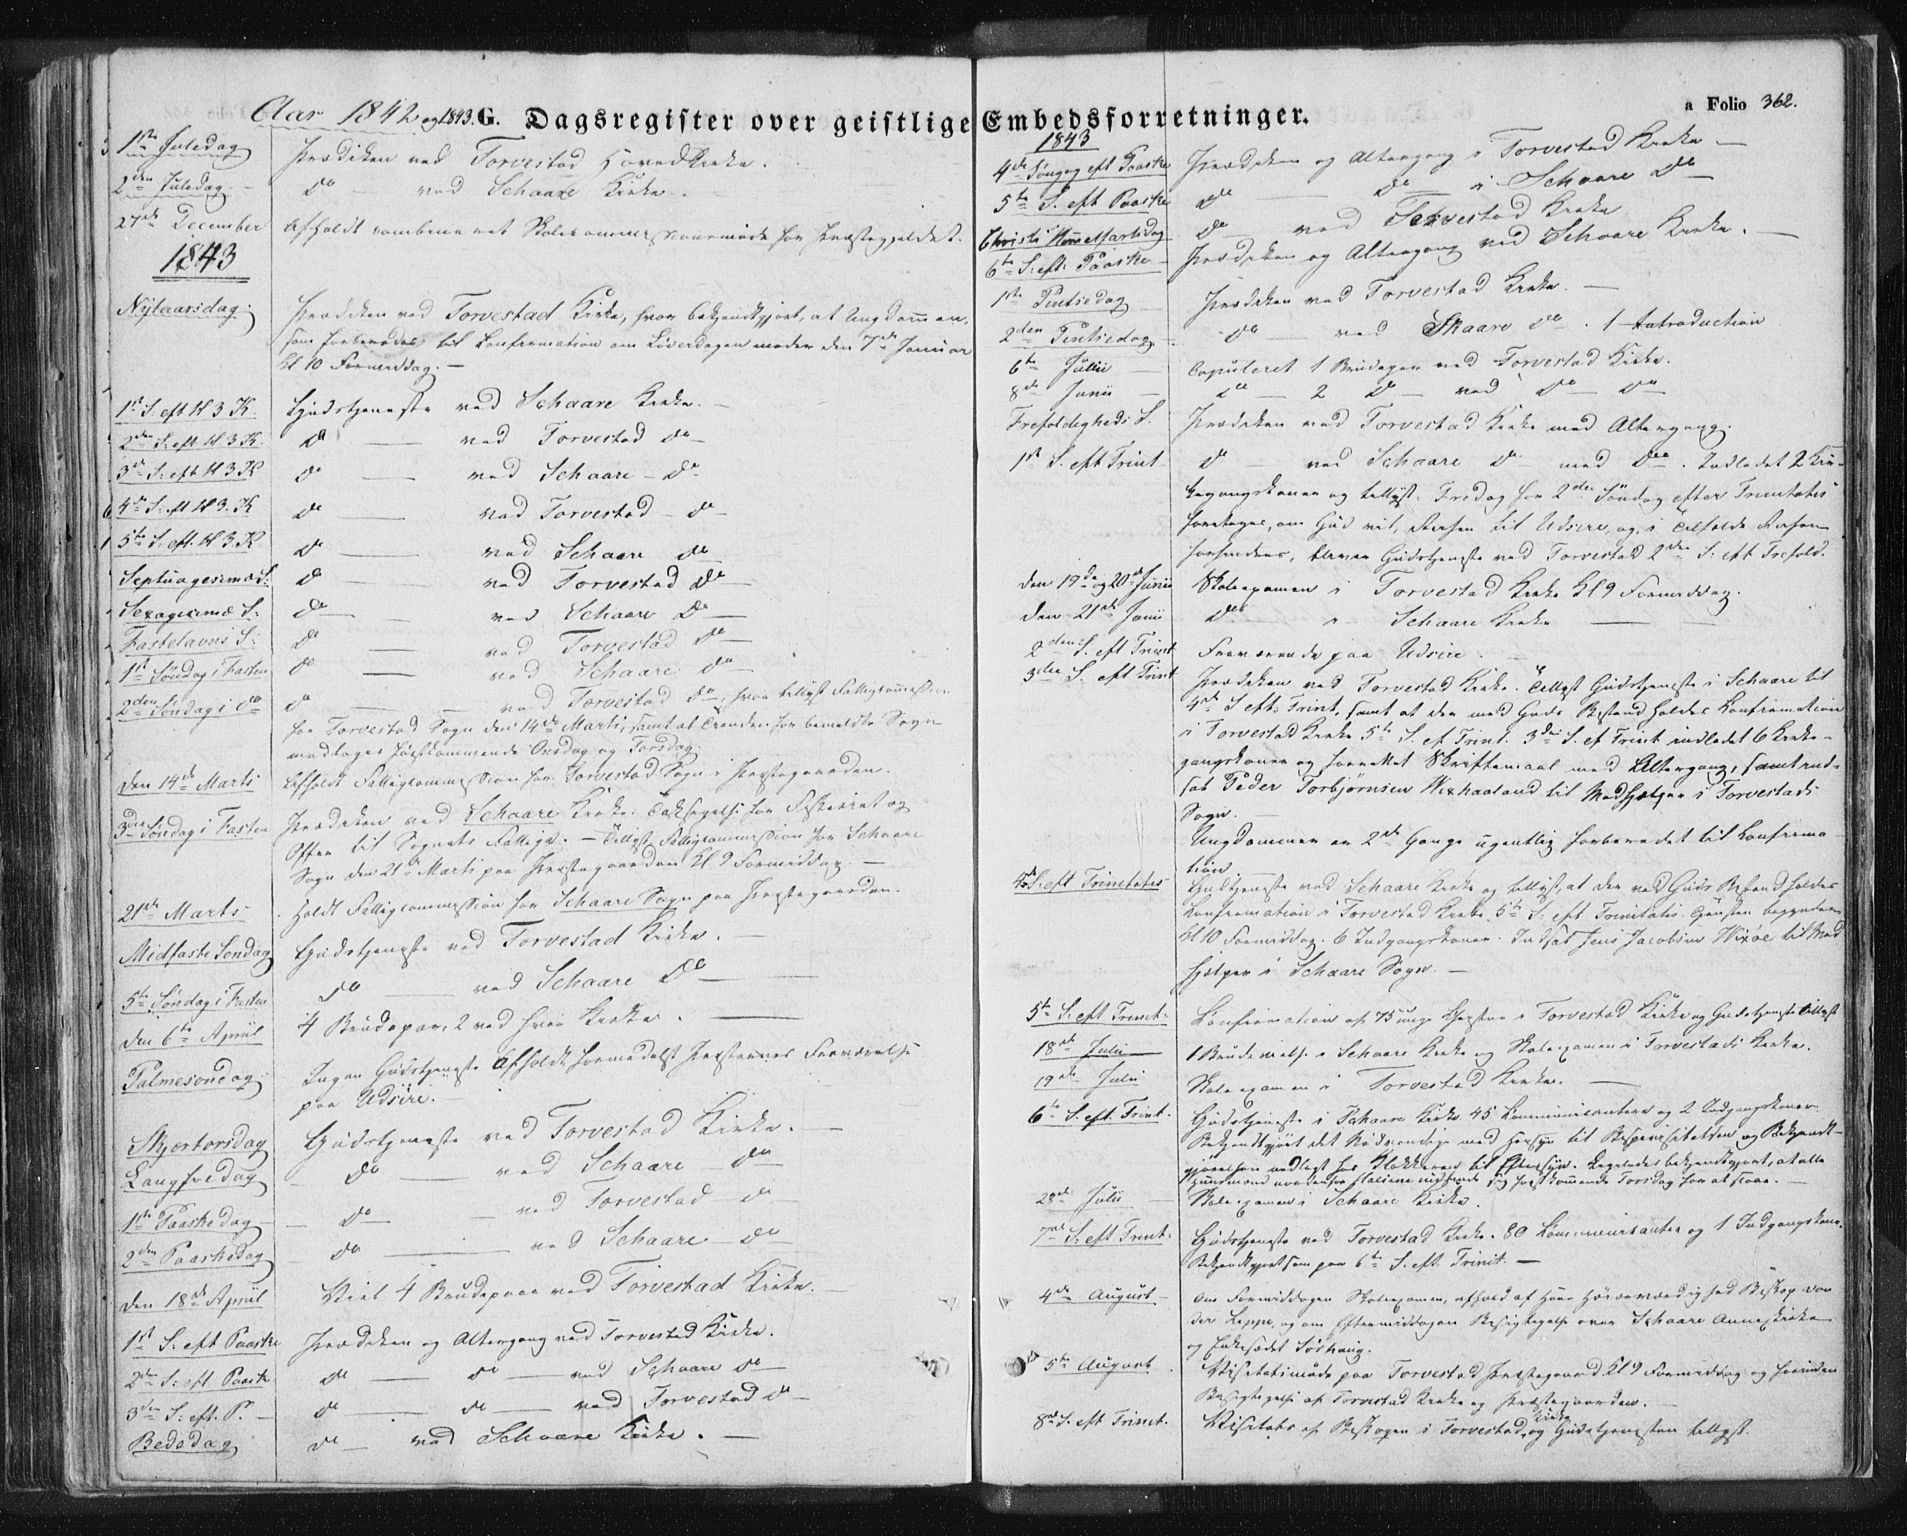 Aar 1842 og 1843. G. Dagsregister over geistlige Embedsforretninger.
a Folio 362.
1ste Juledag Prædiken ved Torvestad Hovedkirke.
2den Juledag. do — ved Schaare Kirke.
27de December Afholdt combineret Skolecommissionsmøde for Præstegjeldet.
1843
Nytaarsdag. Prædiken ved Torvestad Kirke, hvor bekjendtgjort, at Ungdommen,
som forberedes til Confirmation om Løverdagen møder den 7de Januar
Kl 10 Formiddag. —
1st S. eft H 3 K. Gudstjeneste ved Schaare Kirke. —
2den S. eft H 3 K. do — ved Torvestad do —
3de S. eft H 3 K do — ved Schaare — do
4de S. eft H 3. K do — ved Torvestad — do —
5te S. eft. H 3. K do — ved Schaare do —
Septuagesimæ S. do — ved Torvestad do —
Sexagesimæ S. do — ved Schaare do —
Fastelavns S. do — ved Torvestad do —
1st Søndag i Fasten do — ved Schaare do —
2den Søndag i do do — ved Torvestad do, hvor tillyst Fattigcommission
for Torvestad Sogn den 14de Marti, samt at Tienden for bemeldte Sogn
modtages førstkommende Onsdag og Torsdag.
den 14de Marti Afholdt Fattigcommission for Torvestad Sogn i Præstegaarden.
3die Søndag i Fasten Prædiken ved Schaare Kirke. Taksigelse for Fiskeriet og
Offer til Sognets Fattige. — Tillyst Fattigcommission for Schaare
Sogn den 21de Marti paa Præstegaarden Kl 9 Formiddag. —
21de Marts Holdt Fattigcommission for Schaare Sogn paa Præstegaarden.
Midfaste Søndag Gudstjeneste ved Torvestad Kirke. —
5te Søndag i Fasten do — ved Schaare do —
den 6te April 4 Brudepar, 2 ved hver Kirke. —
Palmesøndag Ingen Gudstjeneste Afholdt formedelst Præsternes Fraværelse
paa Udsire. —
Skjertorsdag Gudstjeneste ved Torvestad Kirke. —
Langfredag do — ved Schaare — do
1ste Paaskedag — do — ved Torvestad do
2den Paaskedag do — ved Schaare — do
den 18de April Viet 4 Brudepar ved Torvestad Kirke. —
1st S. eft Paaske Prædiken og Altergang ved Torvestad Kirke.
2den S. eft Paaske do — do — ved Schaare do
3die S. eft. P. — do — do — ved Torvestad do —
Bededag do — ved Schaare Kirke. —
1843
4de Søndag eft Paaske Prædiken og Altergang i Torvestad Kirke —
5te S. eft Paaske do — do — i Schaare do
Christi Himmelfartsdag do — ved Torvestad Kirke
6te S. eft. Paaske — Prædiken og Altergang ved Schaare Kirke. —
1ste Pintsedag Prædiken ved Torvestad Kirke. —
2den Pintsedag do — ved Skaare do. 1 Introduction
6te Julii — Copuleret 1 Brudepar ved Torvestad Kirke.
8de Junii — do — 2 do — ved do — do
Trefoldigheds S. Prædiken ved Torvestad Kirke med Altergang.
1st S. eft Trint — do — ved Schaare do med do. Indledet 2 Kir-
kegangskoner og tillyst: Fredag for 2den Søndag efter Trinitatis
foretages, om Gud vil, Reisen til Udsire, og, i Tilfælde Reisen
forhindres, bliver Gudstjeneste ved Torvestad 2den S. eft Trefold.
den 19de og 20de Junii Skoleexamen i Torvestad Kirke Kl 9 Formiddag.
den 21de Junii do — i Schaare Kirke —
2den S. eft Trint Fraværende paa Udsire. —
3die S. eft Trint Prædiken ved Torvestad Kirke. Tillyst Gudstjeneste i Schaare til
4de S eft. Trint, samt at der med Guds Bistand holdes Confirmation
i Torvestad Kirke 5te S. ef Trint. 3die S. ef Trint indledet 6 Kirke-
gangskoner og forrettet Skriftemaal med Altergang, samt ind-
sat Peder Torbjørnsen Wixhaaland til Medhjelper i Torvestads
Sogn. —
Ungdommen er 2de Gange ugentlig forberedet til Confirma-
tion.
4de S. eft Trinitatis Gudstjeneste ved Schaare Kirke og tillyst, at der ved Guds Bistand holdes
Confirmation i Torvestad Kirke 5te S. eft Trinitatis. Tjenesten begynder
Kl 10 Formiddag. 6 Indgangskoner. Indsat Jens Jacobsen Wixøe til Med
hjelper i Schaare Sogn. —
5te S. eft Trinit. Confirmation af 75 unge Christne i Torvestad Kirke og Gudstjeneste tillyst
18de Julii 1 Brudevielse i Schaare Kirke og Skoleexamen i Torvestads Kirke.
19de Julii Skoleexamen i Torvestad Kirke. —
6te S. eft. Trint. Gudstjeneste i Schaare Kirke 45 Communicantere og 2 Indgangskoner.
Bekjendtgjort det Nødvendige med Hensyn til Bispevisitatsen og Bekjendt-
gjørelsen nedlagt hos Klokkeren til Eftersyn. Ligeledes bekjendtgjort, at alle
førstkommende Torsdag for at staae. —
28de Julii — Skoleexamen i Schaare Kirke.
7de S. eft Trint. Gudstjeneste ved Torvestad Kirke. 80 Communicanter og 1 Indgangskone.
Bekjendtgjort som paa 6te S. eft. Trinit. —
4de August — Om Formiddagen Skoleexamen, afhold af Herr Høiærværdighed Biskop von
der Lippe, og om Eftermiddagen Besigtigelse over Schaare Annexkirke
og Enkesædet Sørhaug.
5te August Visitatsmøde paa Torvestad Præstegaard Kl 9 Formiddag og foruden
Besigtigelse af Torvestad Kirke og Præstegaarden. —
8de S. eft Trinit. Visitats af Biskopen i Torvestad Kirke og Gudstjenesten tillyst.